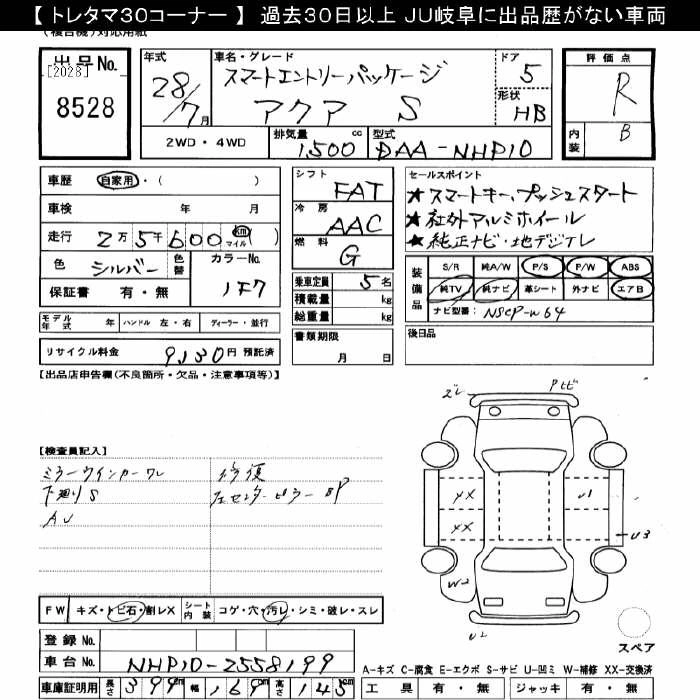 【 トレタマ30コーナー 】 過去30日以上 JU岐阜に出品歴がない車両
(複合機)対応用紙
出品No.
[2028]
8528
年式
28/7月
車名・グレード
スマートエントリーパッケージ
アクア S
ドア
5
形状
HB
評価点
R
内装
B
2WD・4WD
排気量
1,500 cc
型式
DAA-NHP10
車歴 自家用・( )
車検 年 月
走行 2万5千600 km マイル ( )
色 シルバー 色替 カラーNo.
1F7
保証書 有・無
モデル年式 年 ハンドル 左・右 ディーラー・並行
リサイクル料金 9,130円 預託済
シフト FAT
冷房 AAC
燃料 G
乗車定員 5名
積載量 kg
総重量 kg
書類期限
月 日
セールスポイント
★スマートキー、プッシュスタート
★社外アルミホイール
★純正ナビ・地デジTV
装備品
S/R 純A/W P/S P/W ABS
純TV 純ナビ 革シート 外ナビ エアB
ナビ型番: NSCP-W64
後日品
【出品店申告欄(不良箇所・欠品・注意事項等)】
【検査員記入】
ミラーウインカーワレ
下廻りS
AU
修復
左センターピラーBP
ズレ
Pトビ
XX
XX
U1
U3
W2
U2
スペア
FW キズ・トビ石・割レX シート内装 コゲ・穴・汚レ・シミ・破レ・スレ
登録No.
車台No. NHP10-2558199
車庫証明用 長さ 399cm 幅 169cm 高さ 145cm
A-キズ C-腐食 E-エクボ S-サビ U-凹ミ W-補修 XX-交換済
工具 有・無 ジャッキ 有・無